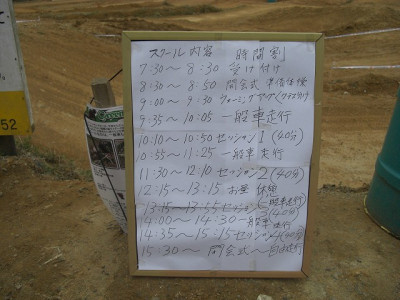 スクール内容 時間割
7:30～8:30 受け付け
8:30～8:50 開会式 準備体操
9:00～9:30 ウォーミングアップ(クラス分け)
9:35～10:05 一般車走行
10:10～10:50 セッション1(40分)
10:55～11:25 一般車走行
11:30～12:10 セッション2(40分)
12:15～13:15 お昼休憩
13:15～13:55 セッション3(40分)
14:00～14:30 一般車走行
14:35～15:15 セッション4(40分)
15:30～ 閉会式～自由走行
52